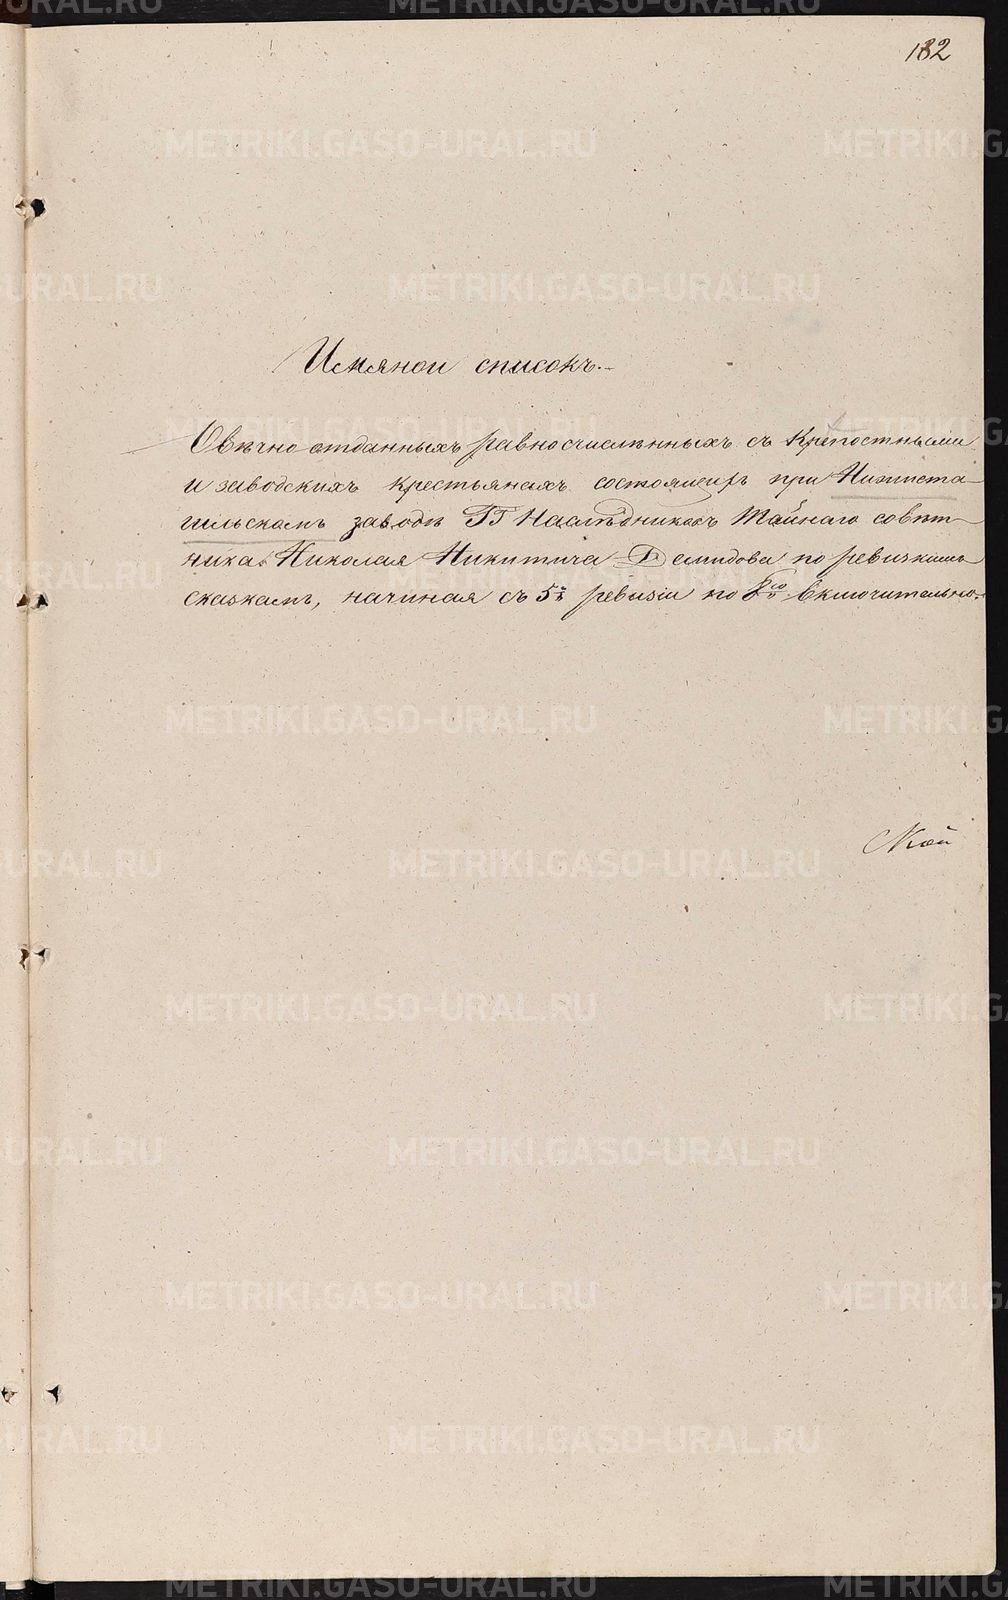 182
Имяной списокъ.
Овѣчно отданныхъ равносчисленныхъ съ крѣпостными
и заводскихъ крестьянахъ состоящихъ при Нижнета
гильскомъ заводѣ ГГ Наслѣдниковъ Тайнаго совѣт
ника Николая Никитича Демидова по ревизкимъ
сказкамъ, начиная съ 5й ревизіи по 8ю включительно.
METRIKI.GASO-URAL.RU